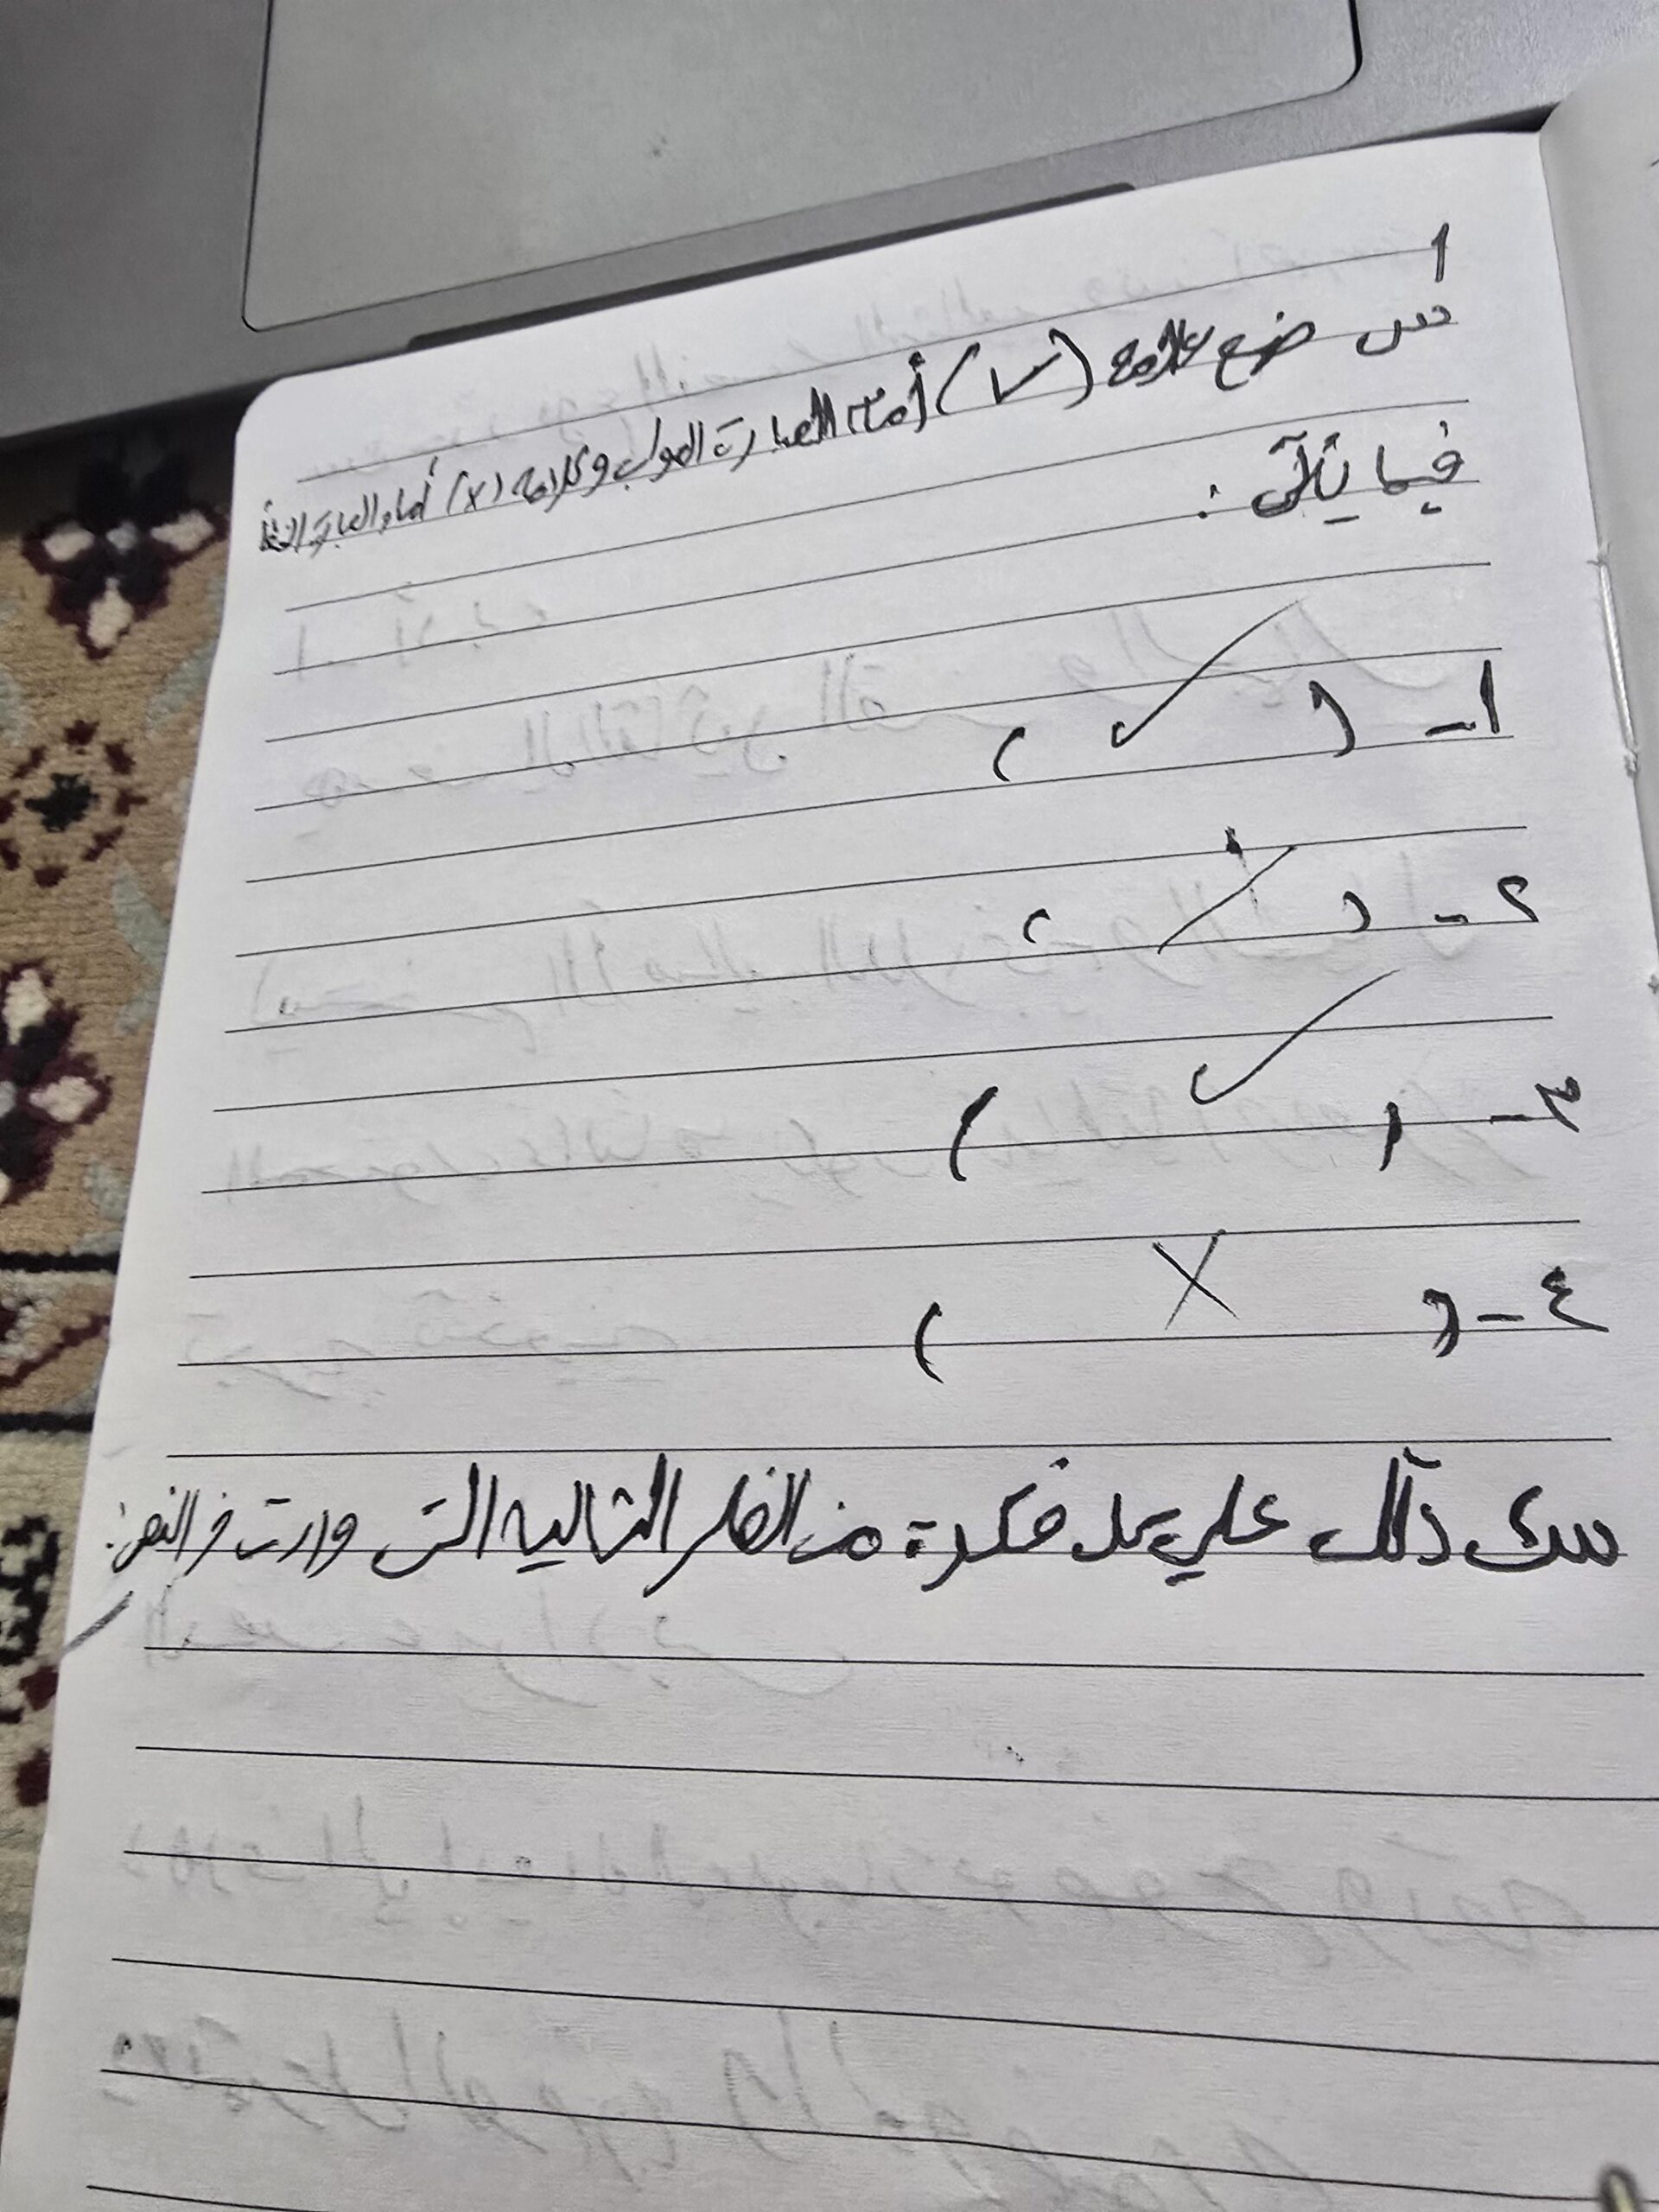 ١
س ضع علامة (✓) أمام العبارة الصواب وعلامة (x) أمام العبارة الخطأ
فيما يأتي :
١- ( ✓ )
٢- ( )
٣- ( ✓ )
٤- ( X )
دلل على كل فكرة من الفكر التالية التي وارت في النص: